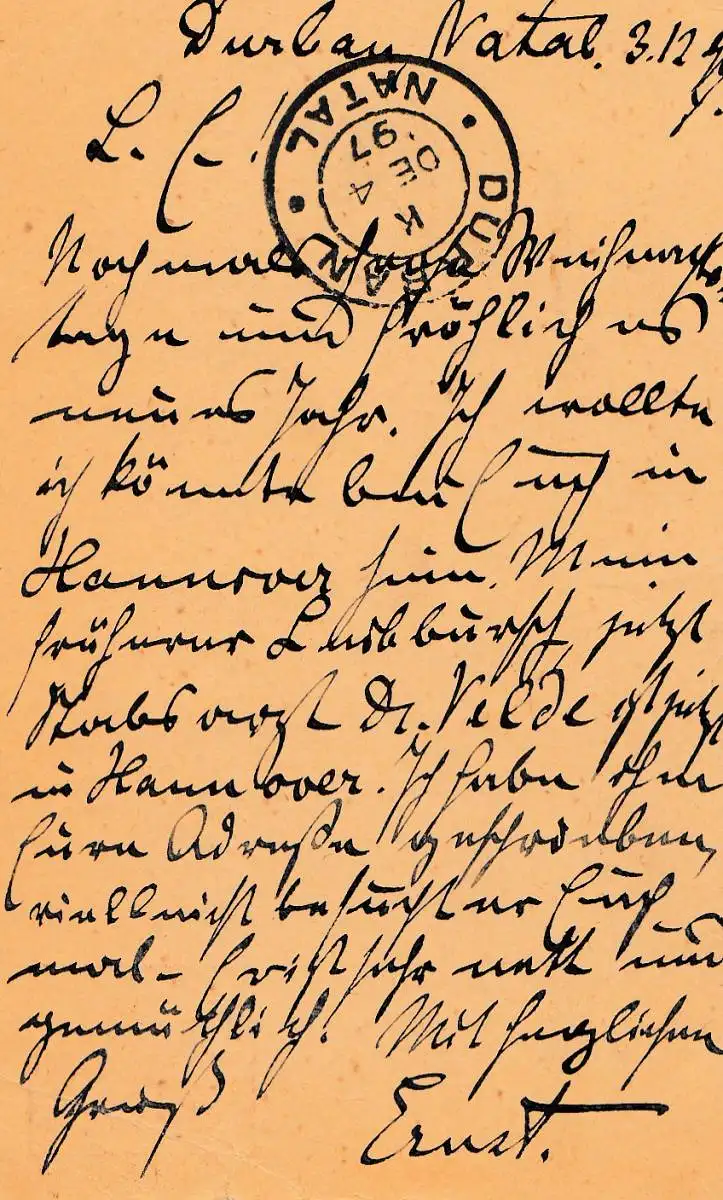 Durban Natal. 3.12.97.
L. E.!
NATAL • DURBAN •
K
DE 4
97
Nochmals frohe Weihnachts-
tage und fröhliches
neues Jahr. Ich wollte
ich könnte bei Euch in
Hannover sein. Mein
früherer Leibbursch, jetzt
Stabsarzt Dr. Velde ist jetzt
in Hannover. Ich habe ihm
Eure Adreße geschrieben,
vielleicht besucht er Euch
mal - Er ist sehr nett und
gemüthlich. Mit herzlichem
Gruß
Ernst.